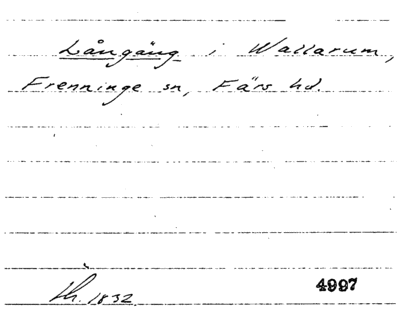 Långäng i Wallarum,
Frenninge sn, Färs hd.
1832
4997